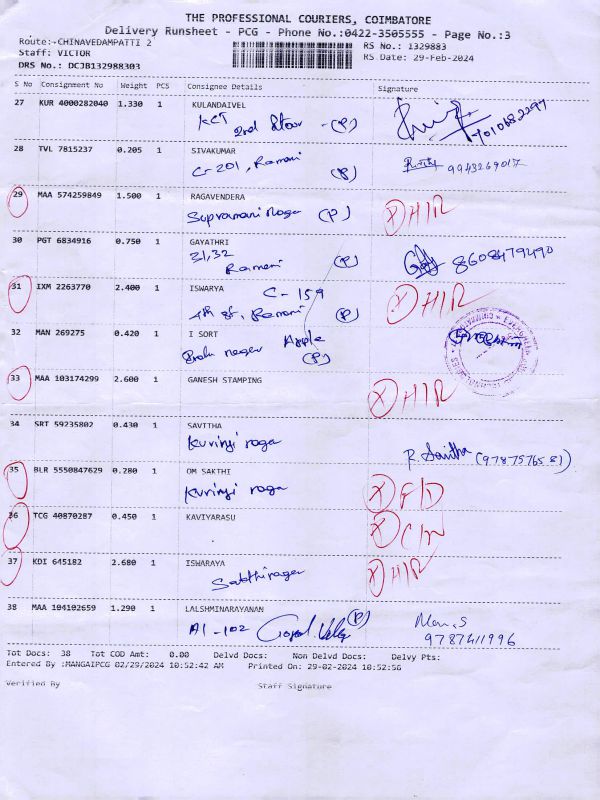 THE PROFESSIONAL COURIERS, COIMBATORE
Delivery Runsheet - PCG - Phone No.:0422-3505555 - Page No.:3
Route:-CHINAVEDAMPATTI 2 RS No.: 1329883
Staff: VICTOR RS Date: 29-Feb-2024
DRS No.: DCJB132988303
S No Consignment No Weight PCS Consignee Details Signature
27 KUR 4000282040 1.330 1 KULANDAIVEL
KCT 2nd floor - (P)
28 TVL 7815237 0.205 1 SIVAKUMAR
C-201, Ramani (P) 9943269017
29 MAA 574259849 1.500 1 RAGAVENDERA
Supramani Naga (P) X HIR
30 PGT 6834916 0.750 1 GAYATHRI
31,32 8608479490
Ramani (P)
31 IXM 2263770 2.400 1 ISWARYA C-159
4th st, Ramani (P) X HIR
32 MAN 269275 0.420 1 I SORT Apple
Balu nagar (P)
33 MAA 103174299 2.600 1 GANESH STAMPING X HIR
34 SRT 59235802 0.430 1 SAVITHA
Kurinji naga R. Savitha (9787576581)
35 BLR 5550847629 0.280 1 OM SAKTHI
Kurinji naga X F/D
36 TCG 40870287 0.450 1 KAVIYARASU X
37 KDI 645182 2.680 1 ISWARAYA
Sakthinagar X HIR
38 MAA 104102659 1.290 1 LALSHMINARAYANAN
A1-102 (P) Mani.S
9787411996
Tot Docs: 38 Tot COD Amt: 0.00 Delvd Docs: Non Delvd Docs: Delvy Pts:
Entered By :MANGAIPCG 02/29/2024 10:52:42 AM Printed On: 29-02-2024 10:52:56
Verified By Staff Signature